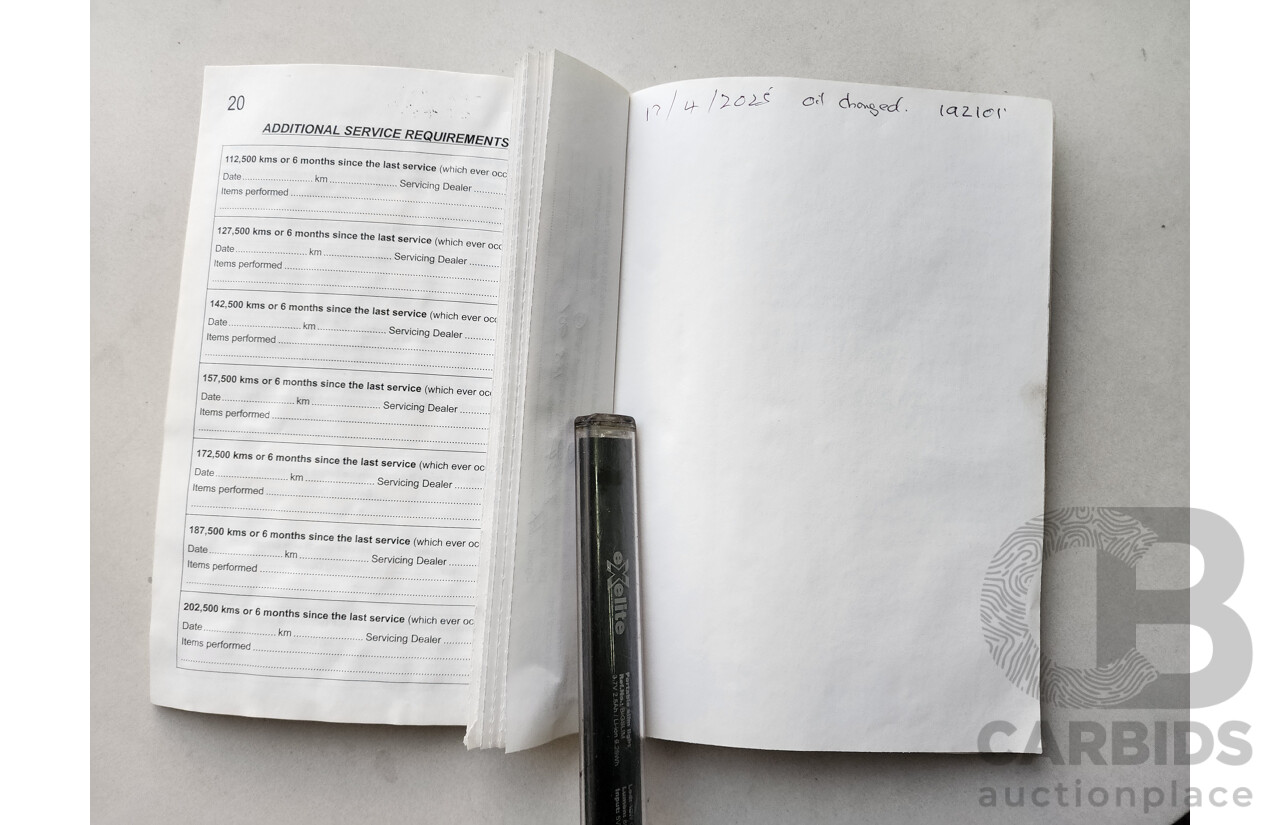 20
ADDITIONAL SERVICE REQUIREMENTS
112,500 kms or 6 months since the last service (which ever occ
Date.................... km .................... Servicing Dealer ........
Items performed ....................
127,500 kms or 6 months since the last service (which ever occ
Date.................... km .................... Servicing Dealer ........
Items performed ....................
142,500 kms or 6 months since the last service (which ever occ
Date.................... km .................... Servicing Dealer ........
Items performed ....................
157,500 kms or 6 months since the last service (which ever occ
Date.................... km .................... Servicing Dealer ........
Items performed ....................
172,500 kms or 6 months since the last service (which ever oc
Date.................... km .................... Servicing Dealer ........
Items performed ....................
187,500 kms or 6 months since the last service (which ever oc
Date.................... km .................... Servicing Dealer ........
Items performed ....................
202,500 kms or 6 months since the last service (which ever oc
Date.................... km .................... Servicing Dealer ........
Items performed ....................
17/4/2025 oil changed. 192101
exelite
CB
CARBIDS
auctionplace